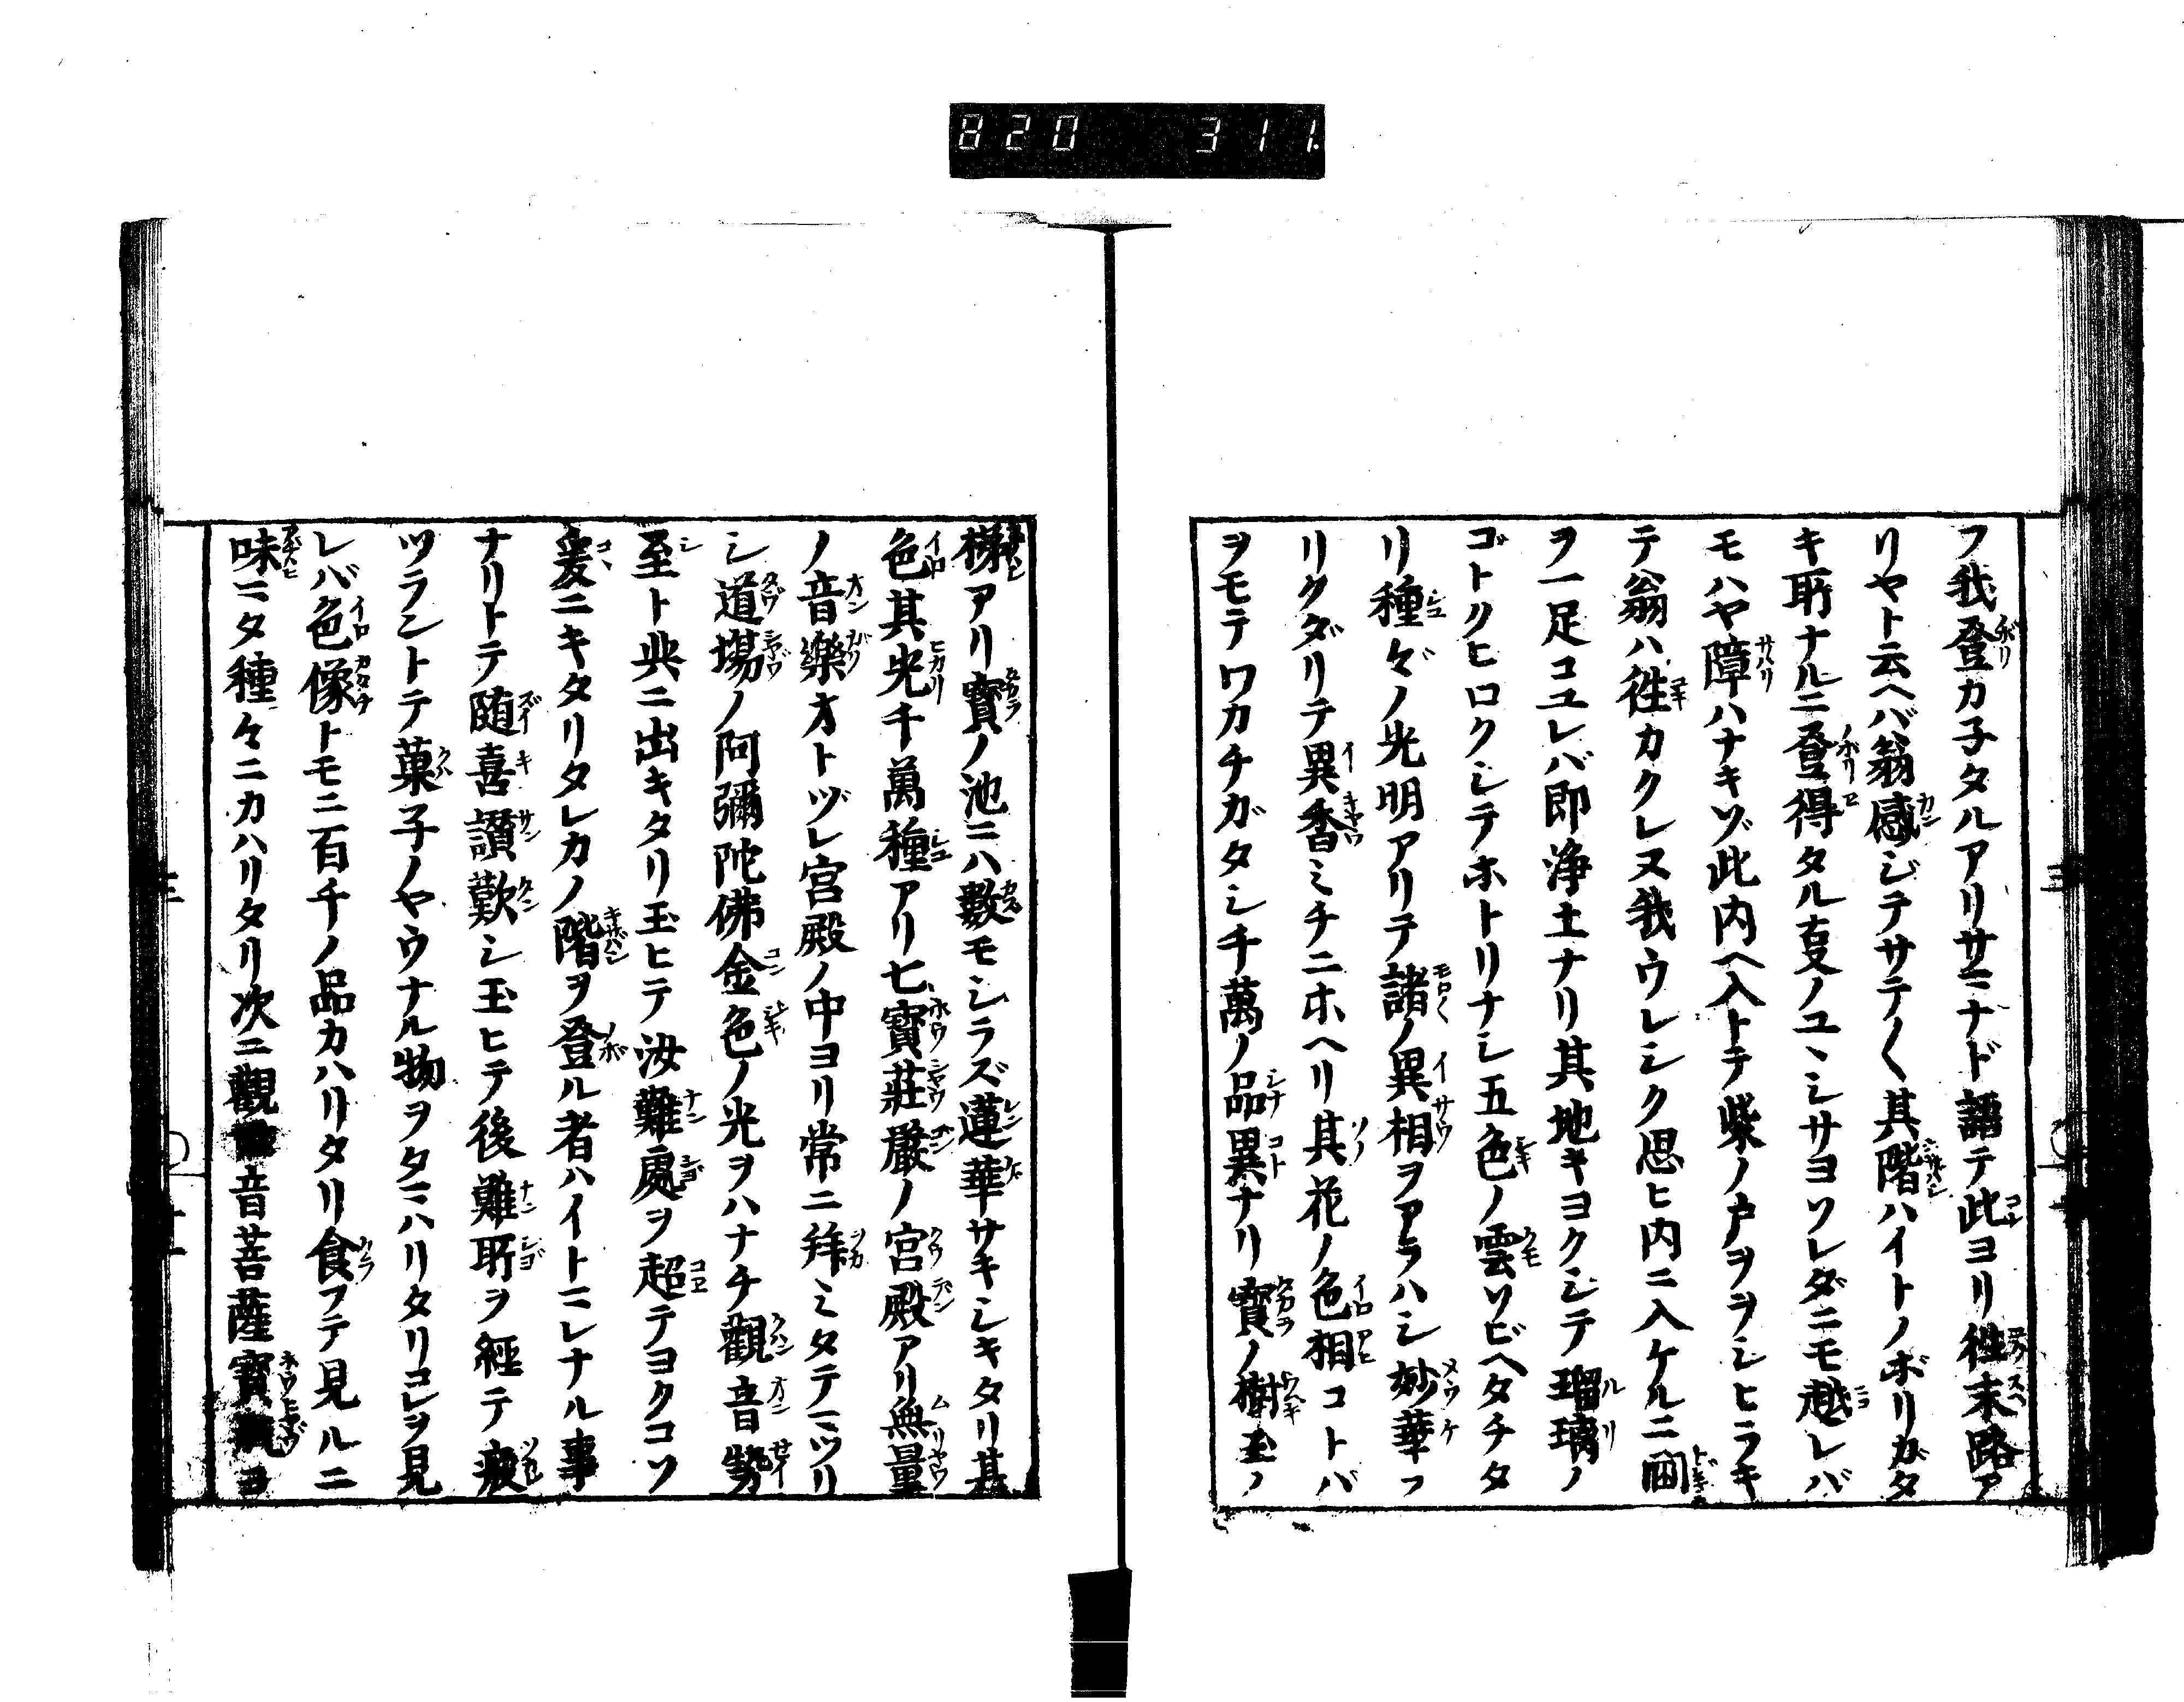 820 311
フ我登カ子タルアリサマナド語テ此ヨリ徃末路ア
リヤト云ヘバ翁感ジテサテ〱其階ハイトノボリガタ
キ所ナルニ登得タル叓ノユヽシサヨソレダニモ越レバ
モハヤ障ハナキゾ此内ヘ入トテ柴ノ戸ヲヲシヒラキ
テ翁ハ徃カクレヌ我ウレシク思ヒ内ニ入ケルニ
ヲ一足コユレバ即浄土ナリ其地キヨクシテ瑠璃ノ
ゴトクヒロクシテホトリナシ五色ノ雲ソビヘタチタ
リ種々ノ光明アリテ諸ノ異相ヲアラハシ妙華フ
リクダリテ異香ミチニホヘリ其花ノ色相コトバ
ヲモテワカチガタシ千萬ノ品異ナリ寳ノ樹玉ノ
梯アリ寳ノ池ニハ數モシラズ蓮華サキシキタリ其
色其光千萬種アリ七寳莊嚴ノ宮殿アリ無量
ノ音樂オトヅレ宮殿ノ中ヨリ常ニ拜ミタテマツリ
シ道場ノ阿彌陀佛金色ノ光ヲハナチ觀音勢
至ト共ニ出キタリ玉ヒテ汝難處ヲ超テヨクコソ
爰ニキタリタレカノ階ヲ登ル者ハイトマレナル事
ナリトテ随喜讃歎シ玉ヒテ後難所ヲ經テ疲
ツラントテ菓子ノヤウナル物ヲタマハリタリコレヲ見
レバ色像トモニ百千ノ品カハリタリ食フテ見ルニ
味マタ種々ニカハリタリ次ニ觀音菩薩寳瓶ヨ